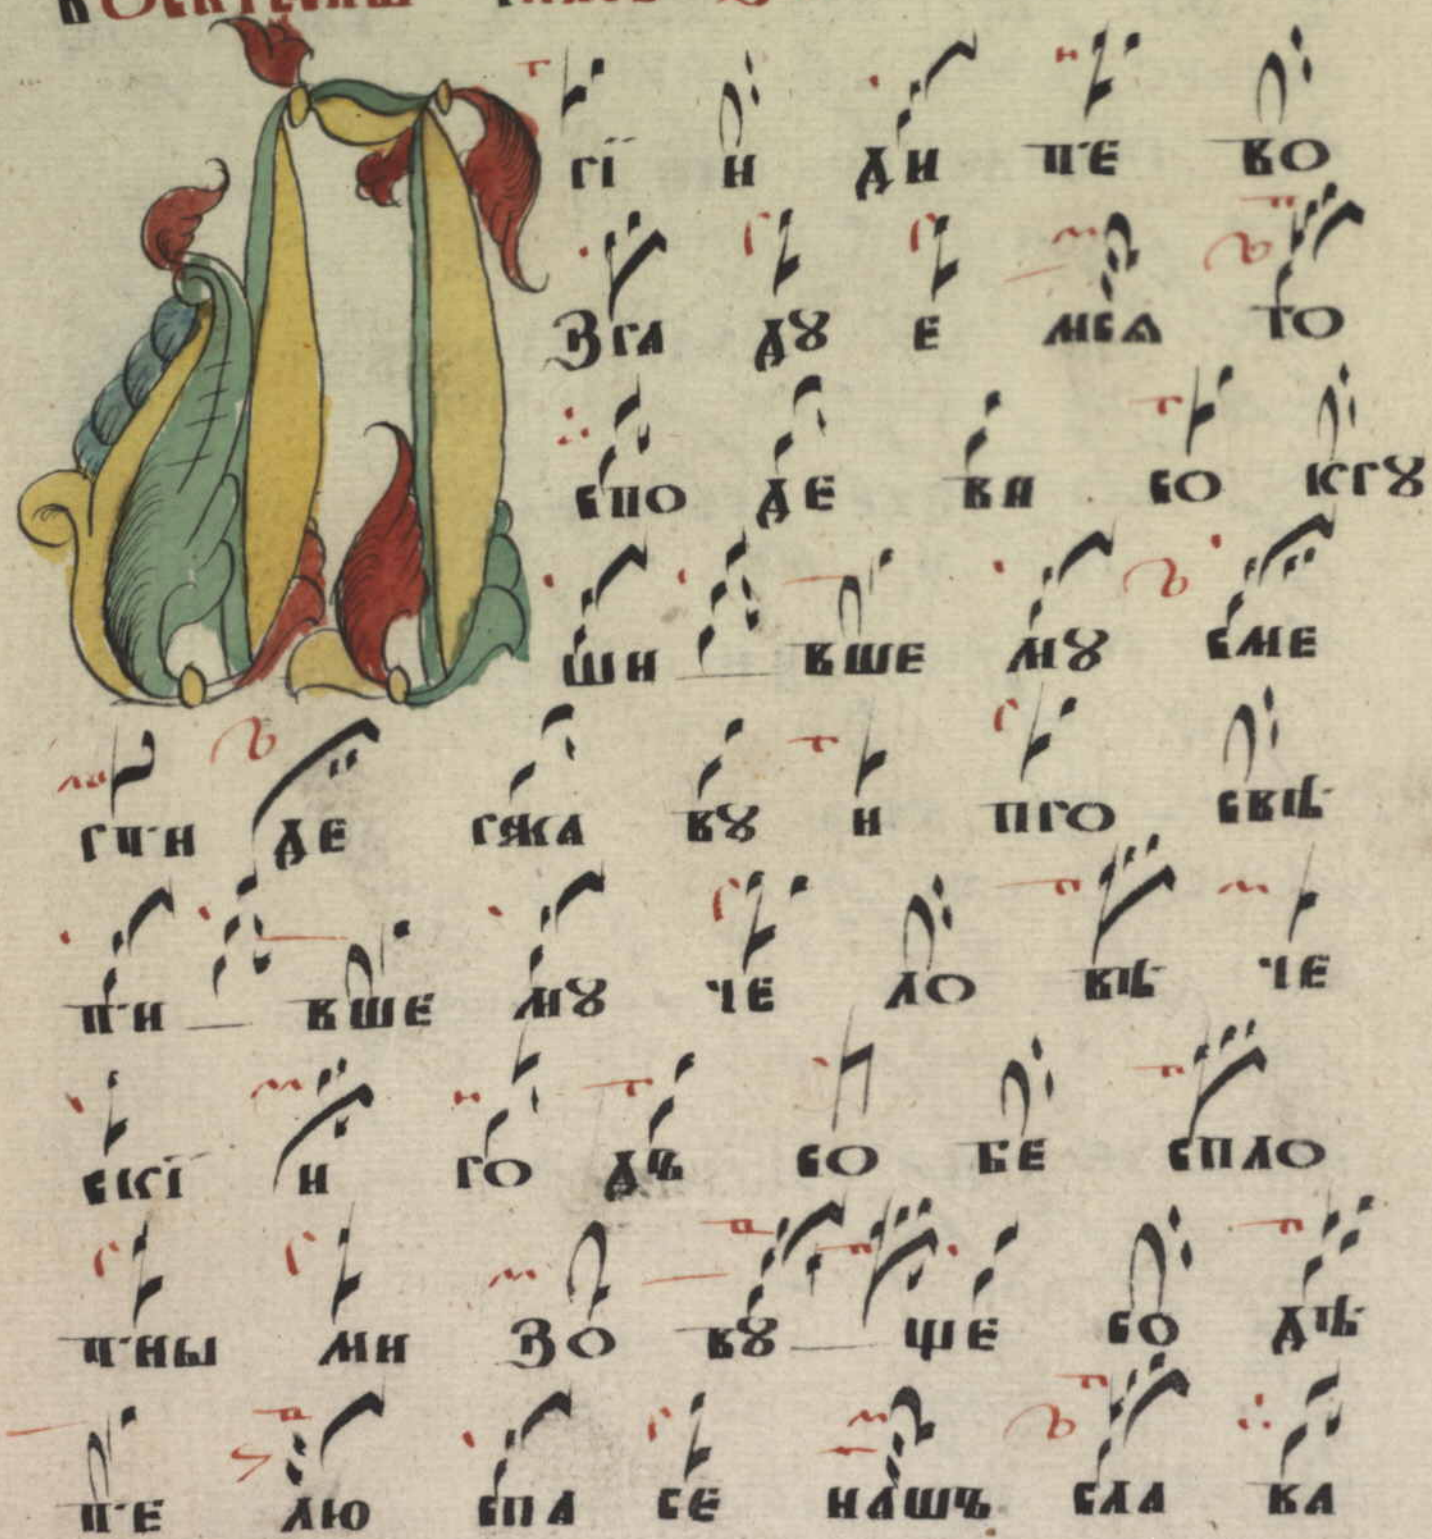 Прї и ди те во
зра дꙋ е мсѧ го
спо де ви со крꙋ
ши вше мꙋ сме
рти де ржа вꙋ и про свѣ
ти вше мꙋ че ло вѣ че
скї и ро дъ со бе спло
тны ми зо вꙋ ще со дѣ
те лю спа се нашъ сла ва